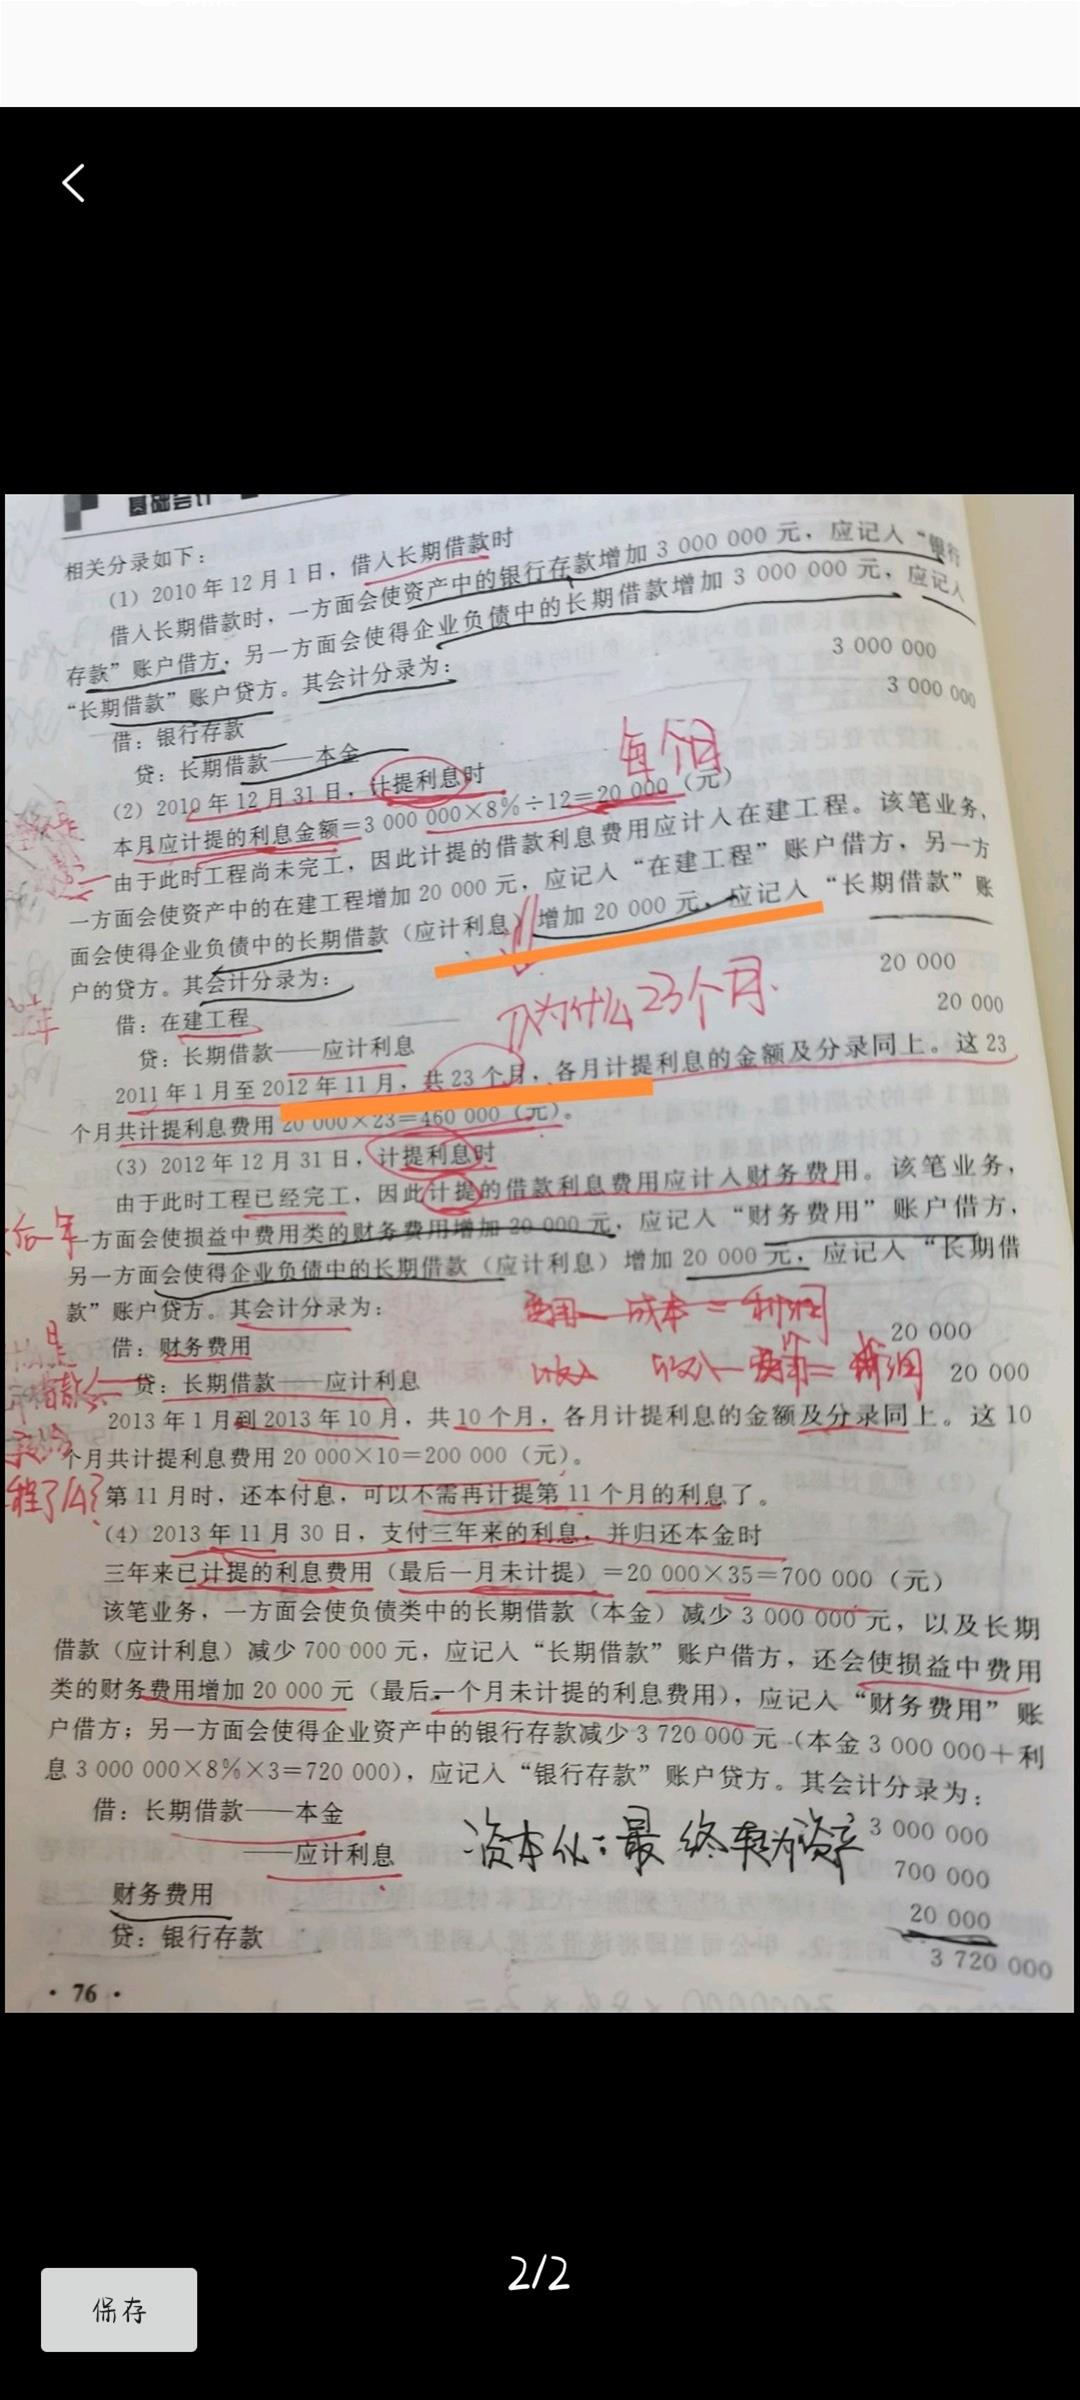 基础会计
相关分录如下：
(1) 2010年12月1日，借入长期借款时
借入长期借款时，一方面会使资产中的银行存款增加3 000 000元，应记入“银行
存款”账户借方，另一方面会使得企业负债中的长期借款增加3 000 000元，应记入
“长期借款”账户贷方。其会计分录为：
借：银行存款 3 000 000
贷：长期借款——本金 3 000 000
每个月
(2) 2010年12月31日，计提利息时
本月应计提的利息金额=3 000 000×8%÷12=20 000（元）
由于此时工程尚未完工，因此计提的借款利息费用应计入在建工程。该笔业务，
一方面会使资产中的在建工程增加20 000元，应记入“在建工程”账户借方，另一方
面会使得企业负债中的长期借款（应计利息）增加20 000元，应记入“长期借款”账
户的贷方。其会计分录为：
借：在建工程 20 000
贷：长期借款——应计利息 20 000
为什么23个月
2011年1月至2012年11月，共23个月，各月计提利息的金额及分录同上。这23
个月共计提利息费用20 000×23=460 000（元）。
(3) 2012年12月31日，计提利息时
由于此时工程已经完工，因此计提的借款利息费用应计入财务费用。该笔业务，
一方面会使损益中费用类的财务费用增加20 000元，应记入“财务费用”账户借方，
另一方面会使得企业负债中的长期借款（应计利息）增加20 000元，应记入“长期借
款”账户贷方。其会计分录为：
费用一成本=利润
借：财务费用 20 000
收入 收入一费用=利润
贷：长期借款——应计利息 20 000
2013年1月到2013年10月，共10个月，各月计提利息的金额及分录同上。这10
个月共计提利息费用20 000×10=200 000（元）。
第11月时，还本付息，可以不需再计提第11个月的利息了。
(4) 2013年11月30日，支付三年来的利息，并归还本金时
三年来已计提的利息费用（最后一月未计提）=20 000×35=700 000（元）
该笔业务，一方面会使负债类中的长期借款（本金）减少3 000 000元，以及长期
借款（应计利息）减少700 000元，应记入“长期借款”账户借方，还会使损益中费用
类的财务费用增加20 000元（最后一个月未计提的利息费用），应记入“财务费用”账
户借方；另一方面会使得企业资产中的银行存款减少3 720 000元（本金3 000 000＋利
息3 000 000×8%×3=720 000），应记入“银行存款”账户贷方。其会计分录为：
借：长期借款——本金 3 000 000
资本化：最终转为资产
——应计利息 700 000
财务费用 20 000
贷：银行存款 3 720 000
· 76 ·
2/2
保存